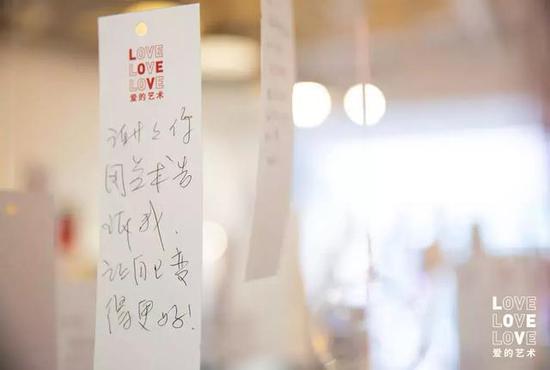 LOVE
LOVE
LOVE
爱的艺术
谢谢你
用艺术告
诉我，
让自己变
得更好！
LOVE
LOVE
LOVE
爱的艺术